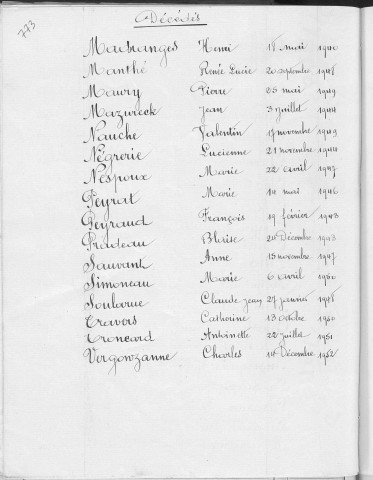 773
Décédés
Maubranges Henri 18 mai 1940
Manthé Renée Lucie 20 septembre 1948
Maury Pierre 25 mai 1949
Mazurcok Jean 3 juillet 1944
Nauche Valentin 17 novembre 1949
Négrerie Lucienne 21 novembre 1944
Nespoux Marie 22 avril 1947
Peyrat Marie 14 mai 1946
Peyraud François 19 février 1943
Pradeau Blaise 20 Décembre 1943
Sauvant Anne 15 novembre 1947
Simoneau Marie 6 avril 1950
Soularue Claude Jean 27 janvier 1948
Travers Catherine 13 octobre 1950
Troncard Antoinette 22 juillet 1951
Vergonzanne Charles 14 Décembre 1952